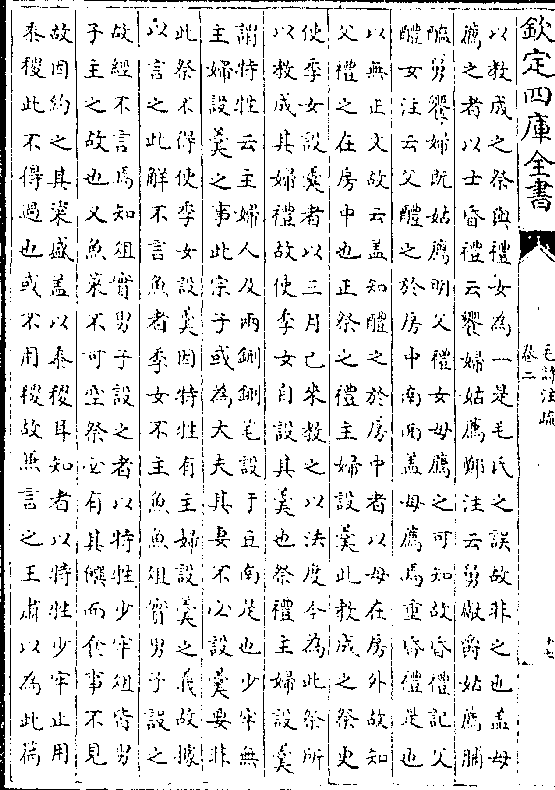 欽定四庫全書
毛詩注疏
卷二
以教成之祭與禮女為一是毛氏之誤故非之也盖母
薦之者以士昏禮云饗婦姑薦鄭注云舅獻爵姑薦脯
醢舅饗婦既姑薦明父禮女母薦之可知故昏禮記父
醴女注云父醴之於房中南面盖母薦焉重昏禮是也
以無正文故云盖知醴之於房中者以母在房外故知
父禮之在房中也正祭之禮主婦設羮此教成之祭更
使季女設羮者以三月已來教之以法度今為此祭所
以教成其婦禮故使季女自設其羮也祭禮主婦設羮
謂特牲云主婦人及兩鉶鉶芼設于豆南是也少牢無
主婦設羮之事此宗子或為大夫其妻不必設羮要非
此祭不得使季女設羮因特牲有主婦設羮之義故據
以言之此解不言魚者季女不主魚魚俎實男子設之
故經不言焉知俎實男子設之者以特牲少牢俎皆男
子主之故也又魚菜不可空祭必有其饌而食事不見
故因約之其粢盛盖以黍稷耳知者以特牲少牢止用
黍稷此不得過也或不用稷故兼言之王肅以為此篇